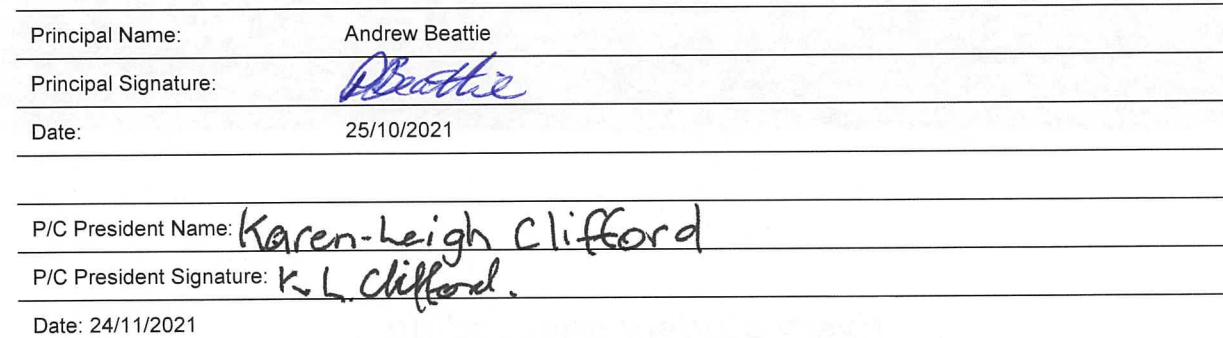 Principal Name: Andrew Beattie
Principal Signature: ABeattie
Date: 25/10/2021
P/C President Name: Karen-Leigh Clifford
P/C President Signature: K. L. Clifford.
Date: 24/11/2021